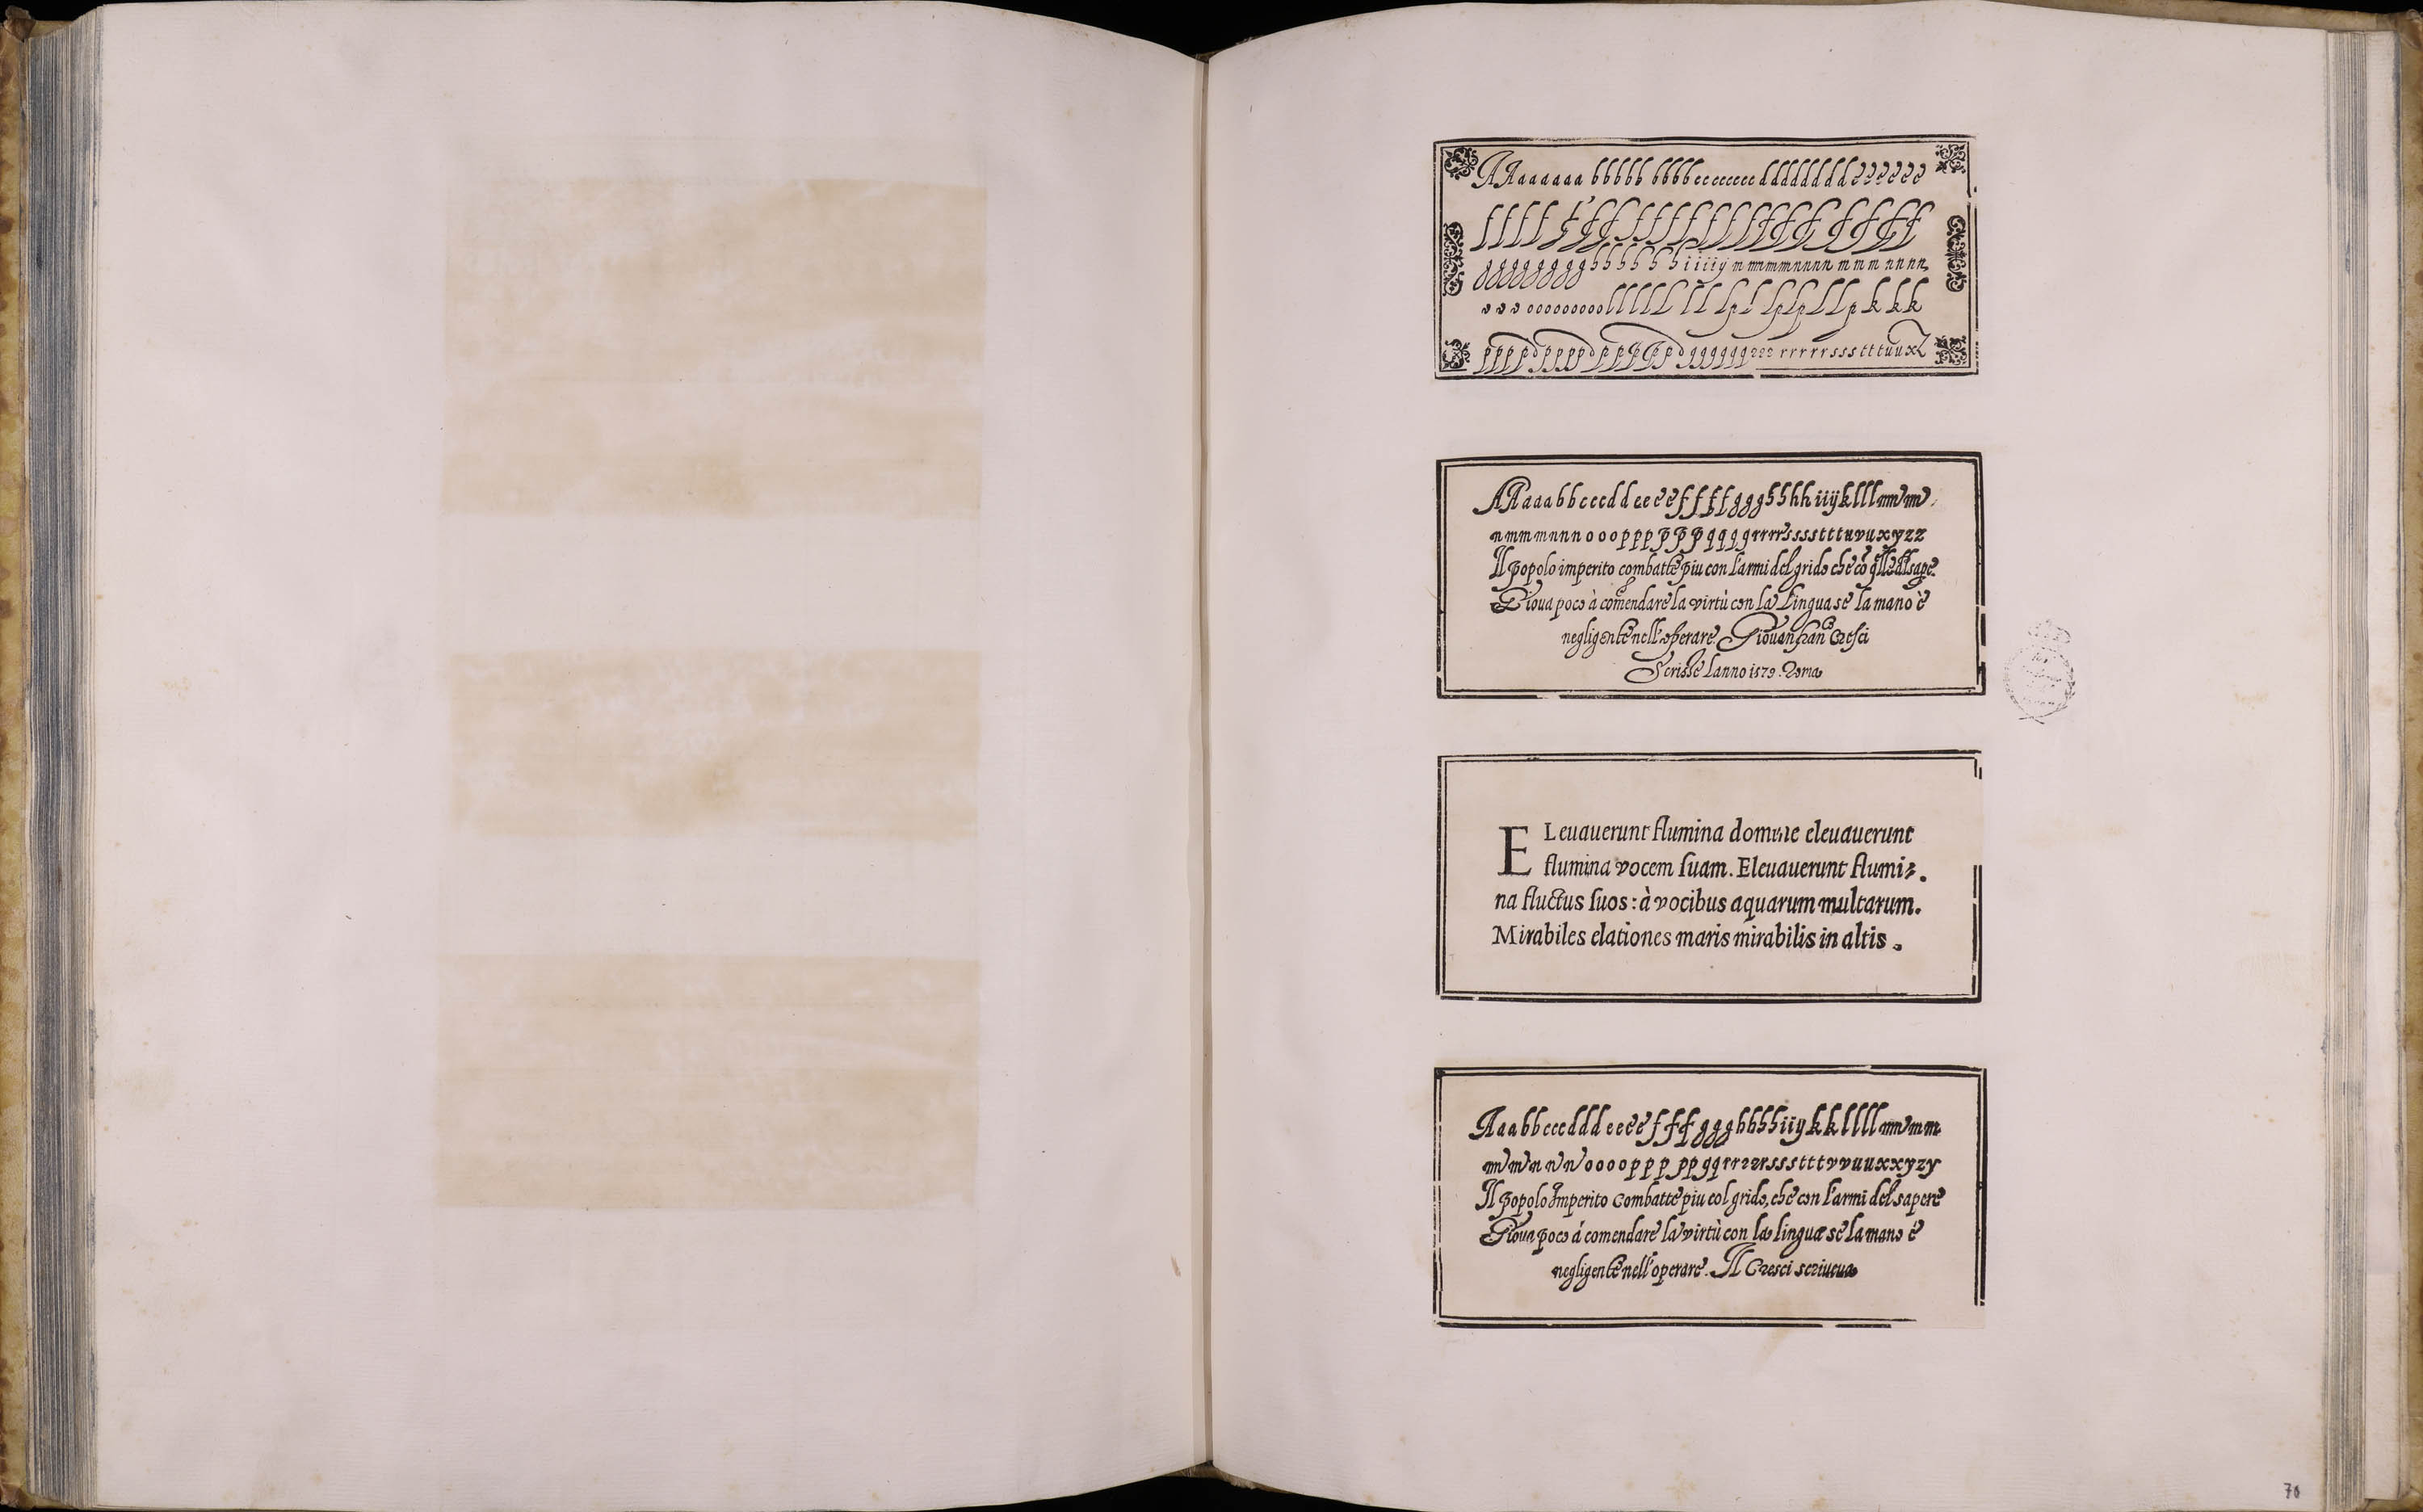 AAaaaaaa bbbbb bbbbccccccccddddddddeeeeee
AAaaabbcccddeeeeffffggghhhhiiyklllmm
nmmmnnnoooppppppqqqqrrrrsssstttuvuxyzz
Il popolo imperito combatte piu con l'armi del grido che cō
Gioua poco à comendare la virtù con la lingua se la mano è
negligente nell'operare Giouan Fran.co Cresci
Scrisse l'anno 1579. Roma
ELeuauerunt flumina domine eleuauerunt
flumina vocem suam. Eleuauerunt flumi-
na fluctus suos: à vocibus aquarum multarum.
Mirabiles elationes maris mirabilis in altis.
Aaabbcccdddeeeefffggghhhhiiykkllllmmm
mmnnnoooopppppqqrrrrrssstttvvuuxxyzy
Il popolo Imperito combatte piu col grido, che con l'armi del sapere
Gioua poco á comendare la virtù con la lingua se la mano è
negligente nell'operare. Il Cresci scriueua
70